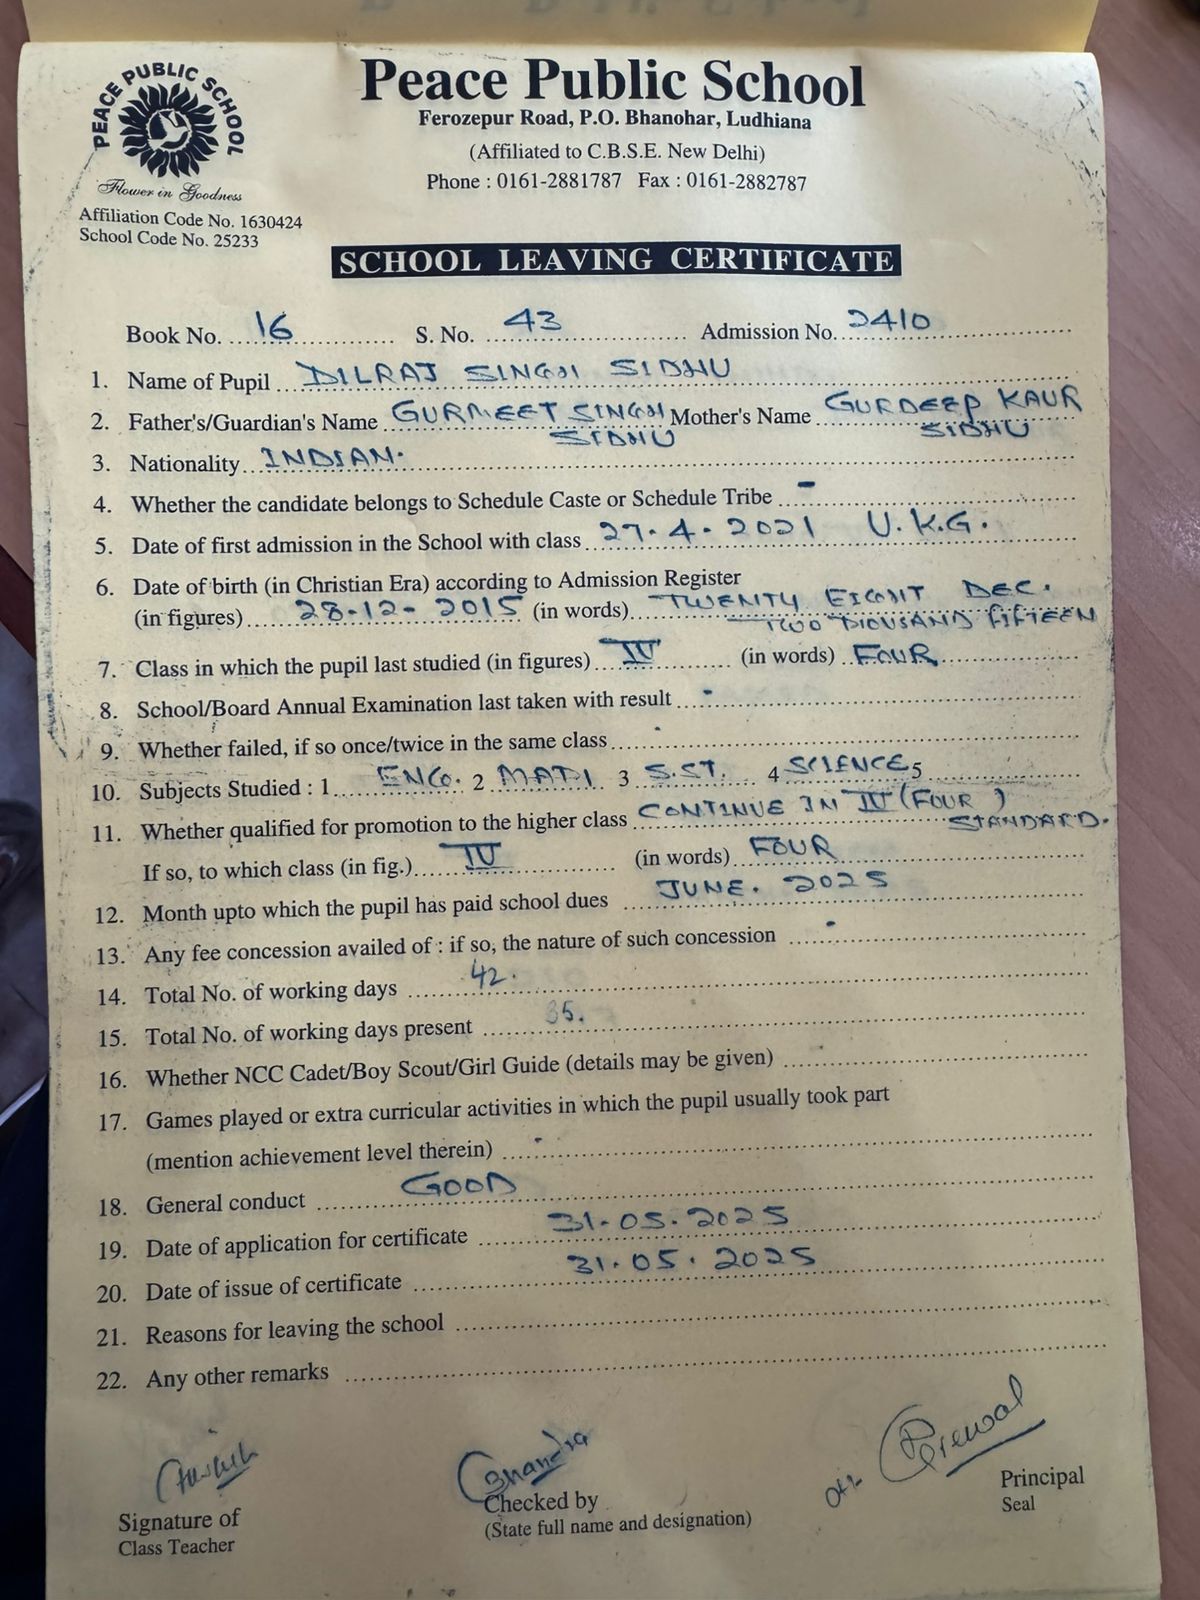 PEACE PUBLIC SCHOOL
Flower in Goodness
Affiliation Code No. 1630424
School Code No. 25233
Peace Public School
Ferozepur Road, P.O. Bhanohar, Ludhiana
(Affiliated to C.B.S.E. New Delhi)
Phone : 0161-2881787 Fax : 0161-2882787
SCHOOL LEAVING CERTIFICATE
Book No. 16 S. No. 43 Admission No. 2410
1. Name of Pupil DILRAJ SINGH SIDHU
2. Father's/Guardian's Name GURMEET SINGH SIDHU Mother's Name GURDEEP KAUR SIDHU
3. Nationality INDIAN.
4. Whether the candidate belongs to Schedule Caste or Schedule Tribe -
5. Date of first admission in the School with class 27-4-2021 U.K.G.
6. Date of birth (in Christian Era) according to Admission Register
(in figures) 28-12-2015 (in words) TWENTY EIGHT DEC.
TWO THOUSAND FIFTEEN
7. Class in which the pupil last studied (in figures) IV (in words) FOUR
8. School/Board Annual Examination last taken with result -
9. Whether failed, if so once/twice in the same class
10. Subjects Studied : 1 ENG. 2 MATH 3 S.ST. 4 SCIENCE 5
11. Whether qualified for promotion to the higher class CONTINUE IN IV (FOUR)
STANDARD.
If so, to which class (in fig.) IV (in words) FOUR
12. Month upto which the pupil has paid school dues JUNE. 2025
13. Any fee concession availed of : if so, the nature of such concession
14. Total No. of working days 42.
15. Total No. of working days present 35.
16. Whether NCC Cadet/Boy Scout/Girl Guide (details may be given)
17. Games played or extra curricular activities in which the pupil usually took part
(mention achievement level therein)
18. General conduct GOOD
19. Date of application for certificate 31-05-2025
20. Date of issue of certificate 31.05.2025
21. Reasons for leaving the school
22. Any other remarks
Chandra
Grewal
Signature of
Class Teacher
Checked by
(State full name and designation)
Principal
Seal